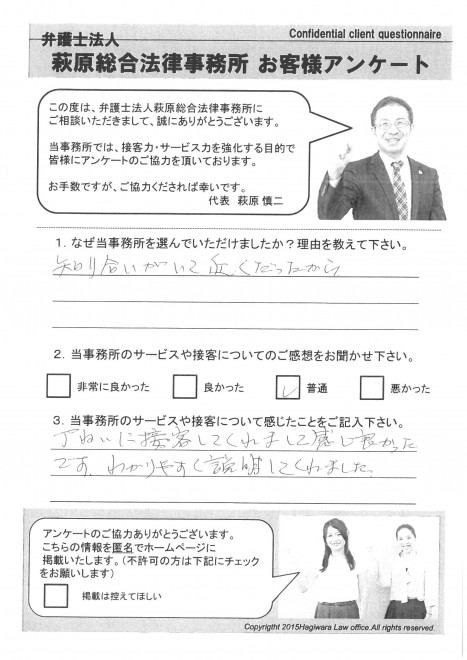 Confidential client questionnaire
弁護士法人
萩原総合法律事務所 お客様アンケート
この度は、弁護士法人萩原総合法律事務所に
ご相談いただきまして、誠にありがとうございます。
当事務所では、接客力・サービス力を強化する目的で
皆様にアンケートのご協力を頂いております。
お手数ですが、ご協力くだされば幸いです。
代表 萩原 慎二
1. なぜ当事務所を選んでいただけましたか？理由を教えて下さい。
知り合いがいて近くだったから
2. 当事務所のサービスや接客についてのご感想をお聞かせ下さい。
非常に良かった 良かった 普通 悪かった
3. 当事務所のサービスや接客について感じたことをご記入下さい。
丁ねいに接客してくれまして感じ良かった
です。わかりやすく説明してくれました。
アンケートのご協力ありがとうございます。
こちらの情報を匿名でホームページに
掲載いたします。（不許可の方は下記にチェック
をお願いします）
掲載は控えてほしい
Copyrigtht 2015Hagiwara Law office.All rights reserved.